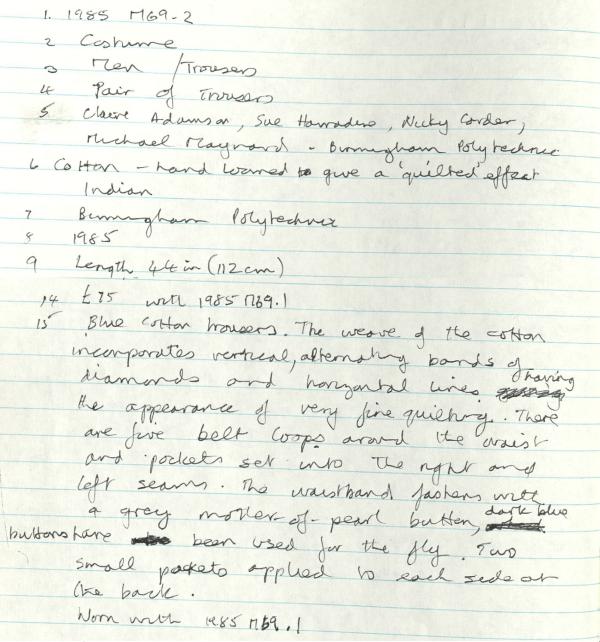 1. 1985 M69-2
2 Costume
3 Men / Trousers
4 Pair of Trousers
5 Claire Adamson, Sue Harradine, Nicky Corder,
Michael Maynard - Birmingham Polytechnic
6 Cotton - hand woven to give a 'quilted' effect
Indian
7 Birmingham Polytechnic
8 1985
9 Length 44 in (112 cm)
14 £75 with 1985 M69.1
15 Blue cotton trousers. The weave of the cotton
incorporates vertical, alternating bands of
diamonds and horizontal lines having
the appearance of very fine quilting. There
are five belt loops around the waist
and pockets set into the right and
left seams. The waistband fastens with
a grey mother-of-pearl button, dark blue
buttons have been used for the fly. Two
small pockets applied to each side at
the back.
Worn with 1985 M69.1